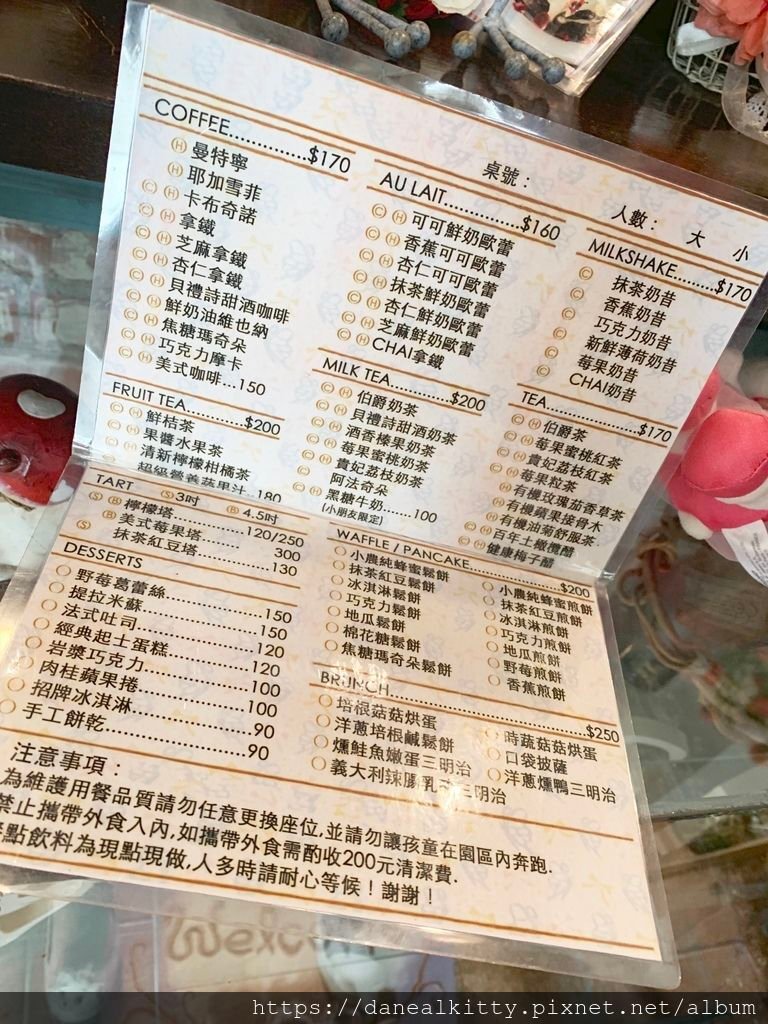 桌號：
人數： 大 小
COFFEE.............$170
Ⓗ 曼特寧
Ⓗ 耶加雪菲
Ⓒ Ⓗ 卡布奇諾
Ⓒ Ⓗ 拿鐵
Ⓒ Ⓗ 芝麻拿鐵
Ⓒ Ⓗ 杏仁拿鐵
Ⓒ Ⓗ 貝禮詩甜酒咖啡
Ⓒ Ⓗ 鮮奶油維也納
Ⓒ Ⓗ 焦糖瑪奇朵
Ⓒ Ⓗ 巧克力摩卡
Ⓒ Ⓗ 美式咖啡...150
AU LAIT..............$160
Ⓒ Ⓗ 可可鮮奶歐蕾
Ⓒ Ⓗ 香蕉可可歐蕾
Ⓒ Ⓗ 杏仁可可歐蕾
Ⓒ Ⓗ 抹茶鮮奶歐蕾
Ⓒ Ⓗ 杏仁鮮奶歐蕾
Ⓒ Ⓗ 芝麻鮮奶歐蕾
Ⓒ Ⓗ CHAI拿鐵
MILKSHAKE.........$170
Ⓒ 抹茶奶昔
Ⓒ 香蕉奶昔
Ⓒ 巧克力奶昔
Ⓒ 新鮮薄荷奶昔
Ⓒ 莓果奶昔
Ⓒ CHAI奶昔
FRUIT TEA..........$200
Ⓒ Ⓗ 鮮桔茶
Ⓒ Ⓗ 果醬水果茶
Ⓒ Ⓗ 清新檸檬柑橘茶
超級營養蔬果汁..180
MILK TEA..............$200
Ⓒ Ⓗ 伯爵奶茶
Ⓒ Ⓗ 貝禮詩甜酒奶茶
Ⓒ Ⓗ 酒香榛果奶茶
Ⓒ Ⓗ 莓果蜜桃奶茶
Ⓒ Ⓗ 貴妃荔枝奶茶
Ⓗ 阿法奇朵
Ⓒ Ⓗ 黑糖牛奶.......100
(小朋友限定)
TEA....................$170
Ⓒ Ⓗ 伯爵茶
Ⓒ Ⓗ 莓果蜜桃紅茶
Ⓒ Ⓗ 貴妃荔枝紅茶
Ⓒ Ⓗ 莓果粒茶
Ⓒ Ⓗ 有機玫瑰茄香草茶
Ⓒ Ⓗ 有機蘋果接骨木
Ⓒ Ⓗ 有機油菊舒服茶
Ⓒ Ⓗ 百年土橄欖醋
Ⓒ Ⓗ 健康梅子醋
TART Ⓢ 3吋 Ⓑ 4.5吋
Ⓢ Ⓑ 檸檬塔...............120/250
Ⓑ 美式莓果塔....... 300
Ⓢ 抹茶紅豆塔...............130
DESSERTS
野莓葛蕾絲....................150
提拉米蘇....................150
法式吐司....................120
經典起士蛋糕....................120
岩漿巧克力....................100
肉桂蘋果捲....................100
招牌冰淇淋....................90
手工餅乾....................90
WAFFLE / PANCAKE....................$200
小農純蜂蜜鬆餅
抹茶紅豆鬆餅
冰淇淋鬆餅
巧克力鬆餅
地瓜鬆餅
棉花糖鬆餅
焦糖瑪奇朵鬆餅
小農純蜂蜜煎餅
抹茶紅豆煎餅
冰淇淋煎餅
巧克力煎餅
地瓜煎餅
野莓煎餅
香蕉煎餅
BRUNCH........................................$250
培根菇菇烘蛋
洋蔥培根鹹鬆餅
燻鮭魚嫩蛋三明治
義大利辣腸乳 三明治
時蔬菇菇烘蛋
口袋披薩
洋蔥燻鴨三明治
注意事項：
為維護用餐品質請勿任意更換座位,並請勿讓孩童在園區內奔跑.
禁止攜帶外食入內,如攜帶外食需酌收200元清潔費.
點飲料為現點現做,人多時請耐心等候！謝謝！
https://danealkitty.pixnet.net/album